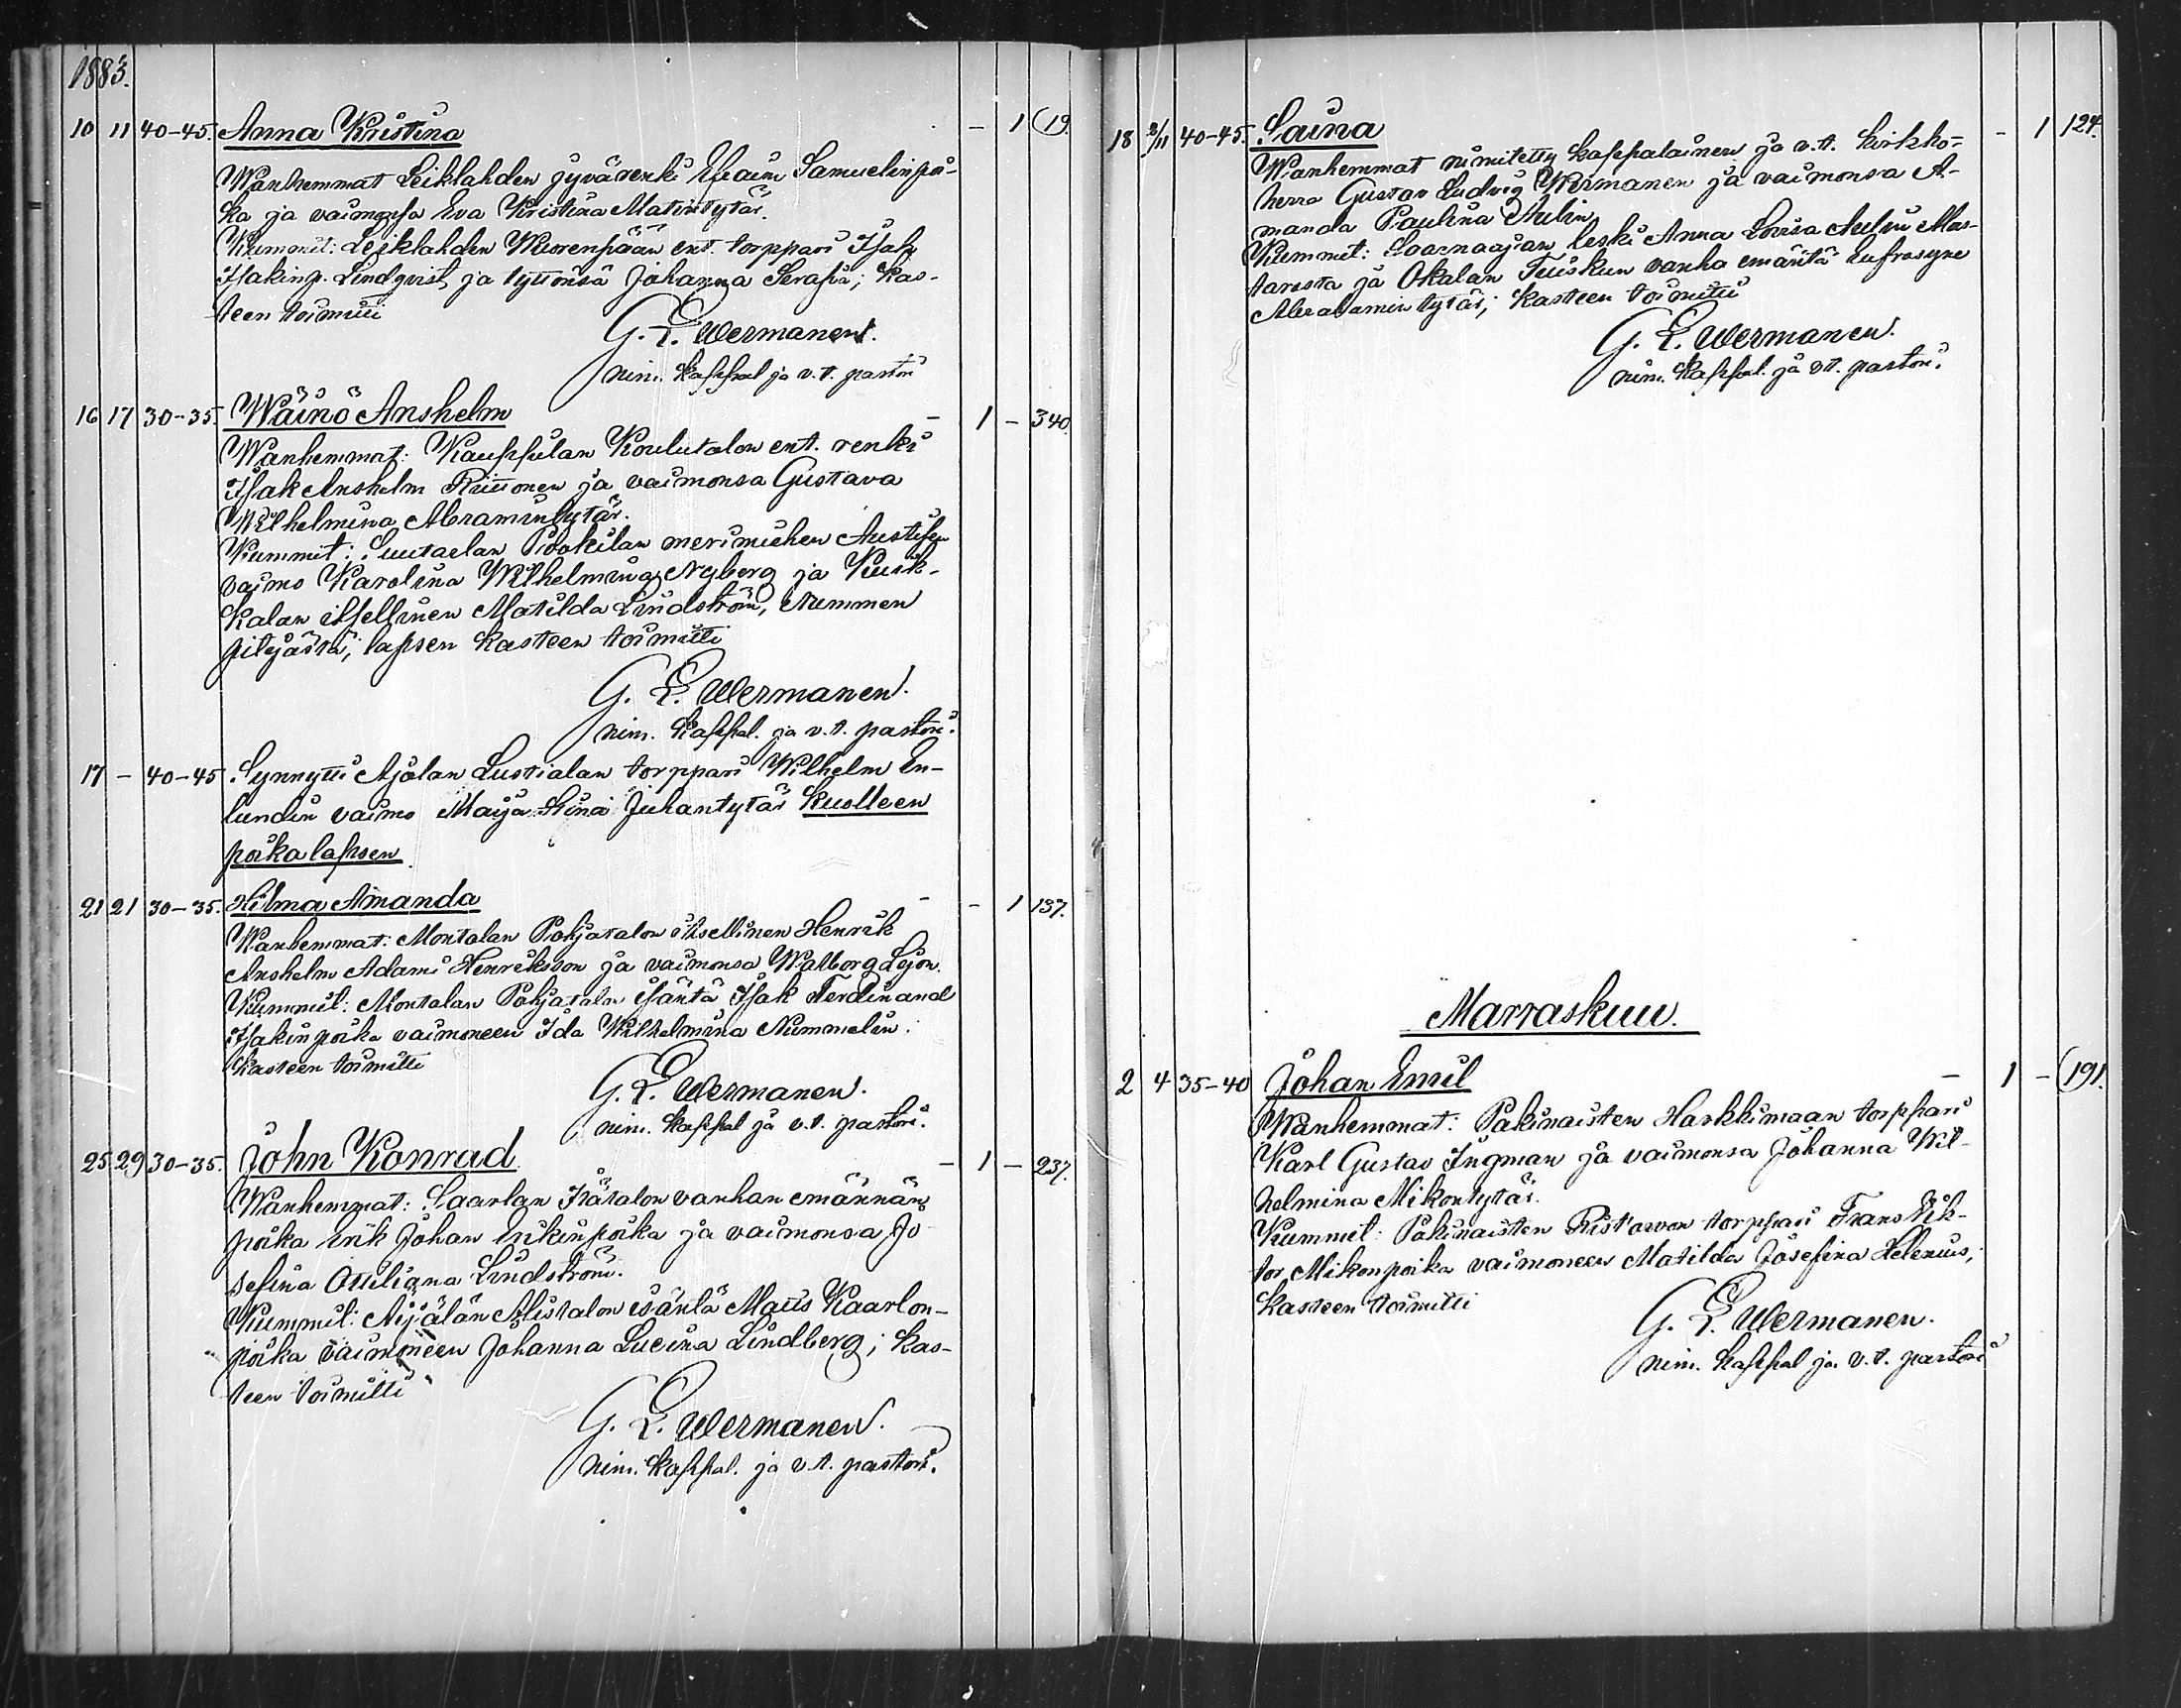 1883.
10 11 40-45. Anna Kristina - 1 (19.
Wanhemmat Leiklahden jyvärenki Efraim Samuelinpoi-
ka ja vaimonsa Eva Kristina Matintytär.
Kummit: Leiklahden Wuorenpään ent. torppari Isak
Isakinp. Lindqvist ja tyttönsä Johanna Serafia; kas-
teen toimitti
G. L. Wermanen.
nim. kappal ja v.t. pastori
16 17 30-35. Wäinö Anshelm - 1 - 340.
Wanhemmat: Kauppilan Koulutalon ent. renki
Isak Anshelm Riittonen ja vaimonsa Gustava
Wilhelmina Abramintytär.
Kummit: Suutarlan Pookilan merimiehen
vaimo Karolina Wilhelmina Nyberg ja Kuik-
kalan itsellinen Matilda Lindström, Nummen
pitäjästä; lapsen kasteen toimitti
G. L. Wermanen.
nim. kappal. ja v.t. pastori.
17 - 40-45 Synnytti Ajolan Lustialan torppari Wilhelm En-
lundin vaimo Maija Stina Juhantytär kuolleen
poikalapsen
21 21 30-35. Hilma Amanda - - 1 137.
Wanhemmat: Montalan Pohjatalon itsellinen Henrik
Anshelm Adami Henriksson ja vaimonsa Walborg Lejon.
Kummit: Montalan Pohjatalon isäntä Isak Ferdinand
Isakinpoika vaimoneen Ida Wilhelmina Nummelin.
Kasteen toimitti
G. L. Wermanen.
nim. kappal ja v.t. pastori.
25 29 30-35. John Konrad - 1 - 237.
Wanhemmat: Saarlan Isätalon vanhan emännän
poika Erik Johan Erikinpoika ja vaimonsa Jo
sefina Ottiliana Lindström.
Kummit: Aijälän Alistalon isäntä Matts Kaarlon-
poika vaimoneen Johanna Lucina Lindberg; kas-
teen toimitti
G. L. Wermanen.
nim. kappal. ja v.t. pastori.
18 2/11 40-45. Saima - 1 124.
Wanhemmat nimitetty kappalainen ja v.t. kirkko-
herra Gustav Ludvig Wermanen ja vaimonsa A-
manda Paulina Aulin
Kummit: Saarnaajan leski Anna Lovisa Aulin
ja Okalan Tuiskun vanha emäntä Eufrosyne
Abrahamin tytär; kasteen toimitti
G. L. Wermanen.
nim. kappal. ja v.t. pastori.
Marraskuu.
2 4 35-40 Johan Emil - 1 - (191.
Wanhemmat: Pakinaisten Harkkimaan torppari
Karl Gustav Ingman ja vaimonsa Johanna Wil-
helmina Mikontytär.
Kummit: Pakinaisten Ristarvon torppari Frans Vik-
tor Mikonpoika vaimoneen Matilda Josefina Helenius;
Kasteen toimitti
G. L. Wermanen.
nim. kappal ja v.t. pastori